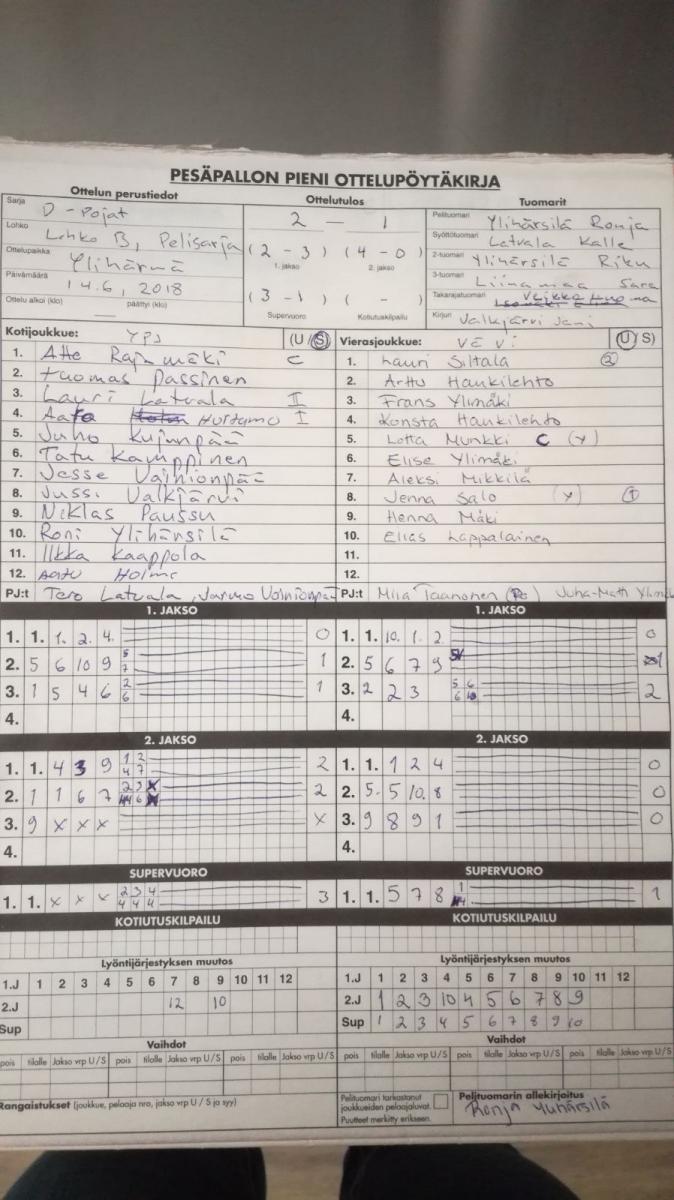 PESÄPALLON PIENI OTTELUPÖYTÄKIRJA
Ottelun perustiedot Ottelutulos Tuomarit
Sarja D-Pojat
Lohko Lohko B, Pelisarja
Ottelupaikka Ylihärmä
Päivämäärä 14.6, 2018
Ottelu alkoi (klo) — päättyi (klo)
2 — 1
(2 - 3) (4 - 0)
1. jakso 2. jakso
(3 - 1) ( - )
Supervuoro Kotiutuskilpailu
Pelituomari Ylihärsilä Ronja
Syöttötuomari Latvala Kalle
2-tuomari Ylihärsilä Riku
3-tuomari Liinamaa Sara
Takarajatuomari Veikko
Kirjuri Valkjärvi Jani
Kotijoukkue: YPJ (U/S)
1. Atte Rajamäki C
2. Tuomas Passinen
3. Lauri Latvala II
4. Huttamo I
5. Juho Kujanpää
6. Tatu Kamppinen
7. Jesse Vainionpää
8. Jussi Valkjärvi
9. Niklas Paussu
10. Roni Ylihärsilä
11. Ilkka Kaappola
12. Aatu Holma
PJ:t Tero Latvala, Jarmo Vainionpää
Vierasjoukkue: VeVi (U/S)
1. Lauri Siltala 2
2. Arttu Haukilehto
3. Frans Ylimäki
4. Konsta Haukilehto
5. Lotta Munkki C (Y)
6. Elise Ylimäki
7. Aleksi Mikkilä
8. Jenna Salo (Y) 1
9. Henna Mäki
10. Elias Lappalainen
11.
12.
PJ:t Miia Taanonen Juha-Matti
1. JAKSO
1. 1. 1. 2. 4. 0
2. 5 6 10 9 5 7 1
3. 1 5 4 6 2 6 1
4.
1. JAKSO
1. 1. 10. 1. 2. 0
2. 5 6 7 9 1
3. 2 2 3 5 6 6 10 2
4.
2. JAKSO
1. 1. 4 3 9 1 2 4 7 2
2. 1 1 6 7 2 3 x 2
3. 9 x x x x
4.
2. JAKSO
1. 1. 1 2 4 0
2. 5. 5 10. 8 0
3. 9 8 9 1 0
4.
SUPERVUORO
1. 1. x x x 2 3 4 4 4 4 3
SUPERVUORO
1. 1. 5 7 8 1 1
KOTIUTUSKILPAILU
KOTIUTUSKILPAILU
Lyöntijärjestyksen muutos
1.J 1 2 3 4 5 6 7 8 9 10 11 12
2.J 12 10
Sup
Lyöntijärjestyksen muutos
1.J 1 2 3 4 5 6 7 8 9 10 11 12
2.J 1 2 3 10 4 5 6 7 8 9
Sup 1 2 3 4 5 6 7 8 9 10
Vaihdot
pois tilalle Jakso vrp U/S pois tilalle Jakso vrp U/S pois tilalle Jakso vrp U/S
Vaihdot
pois tilalle Jakso vrp U/S pois tilalle Jakso vrp U/S pois tilalle Jakso vrp U/S
Rangaistukset (joukkue, pelaaja nro, jakso vrp U / S ja syy)
Pelituomari tarkastanut
joukkueiden pelaajaluvat.
Puutteet merkitty erikseen.
Pelituomarin allekirjoitus
Ronja Ylihärsilä